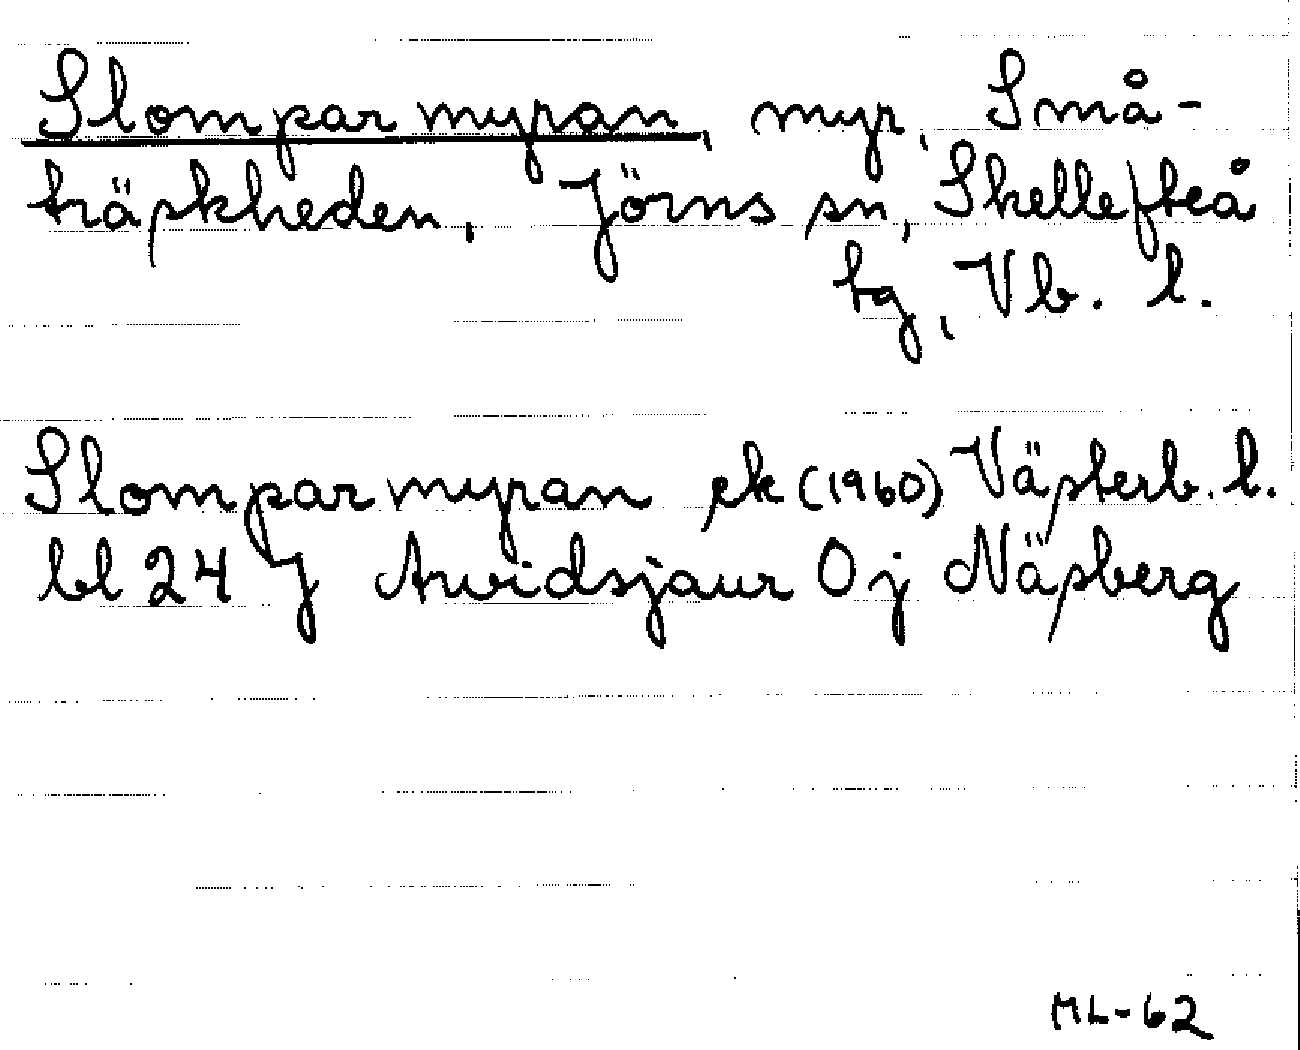 Slomparmyran, myr, Små-
träskheden, Jörns sn, Skellefteå
tg, Vb. l.
Slomparmyran ek (1960) Västerb. l.
bl 24 J Arvidsjaur Oj Näsberg
ML-62